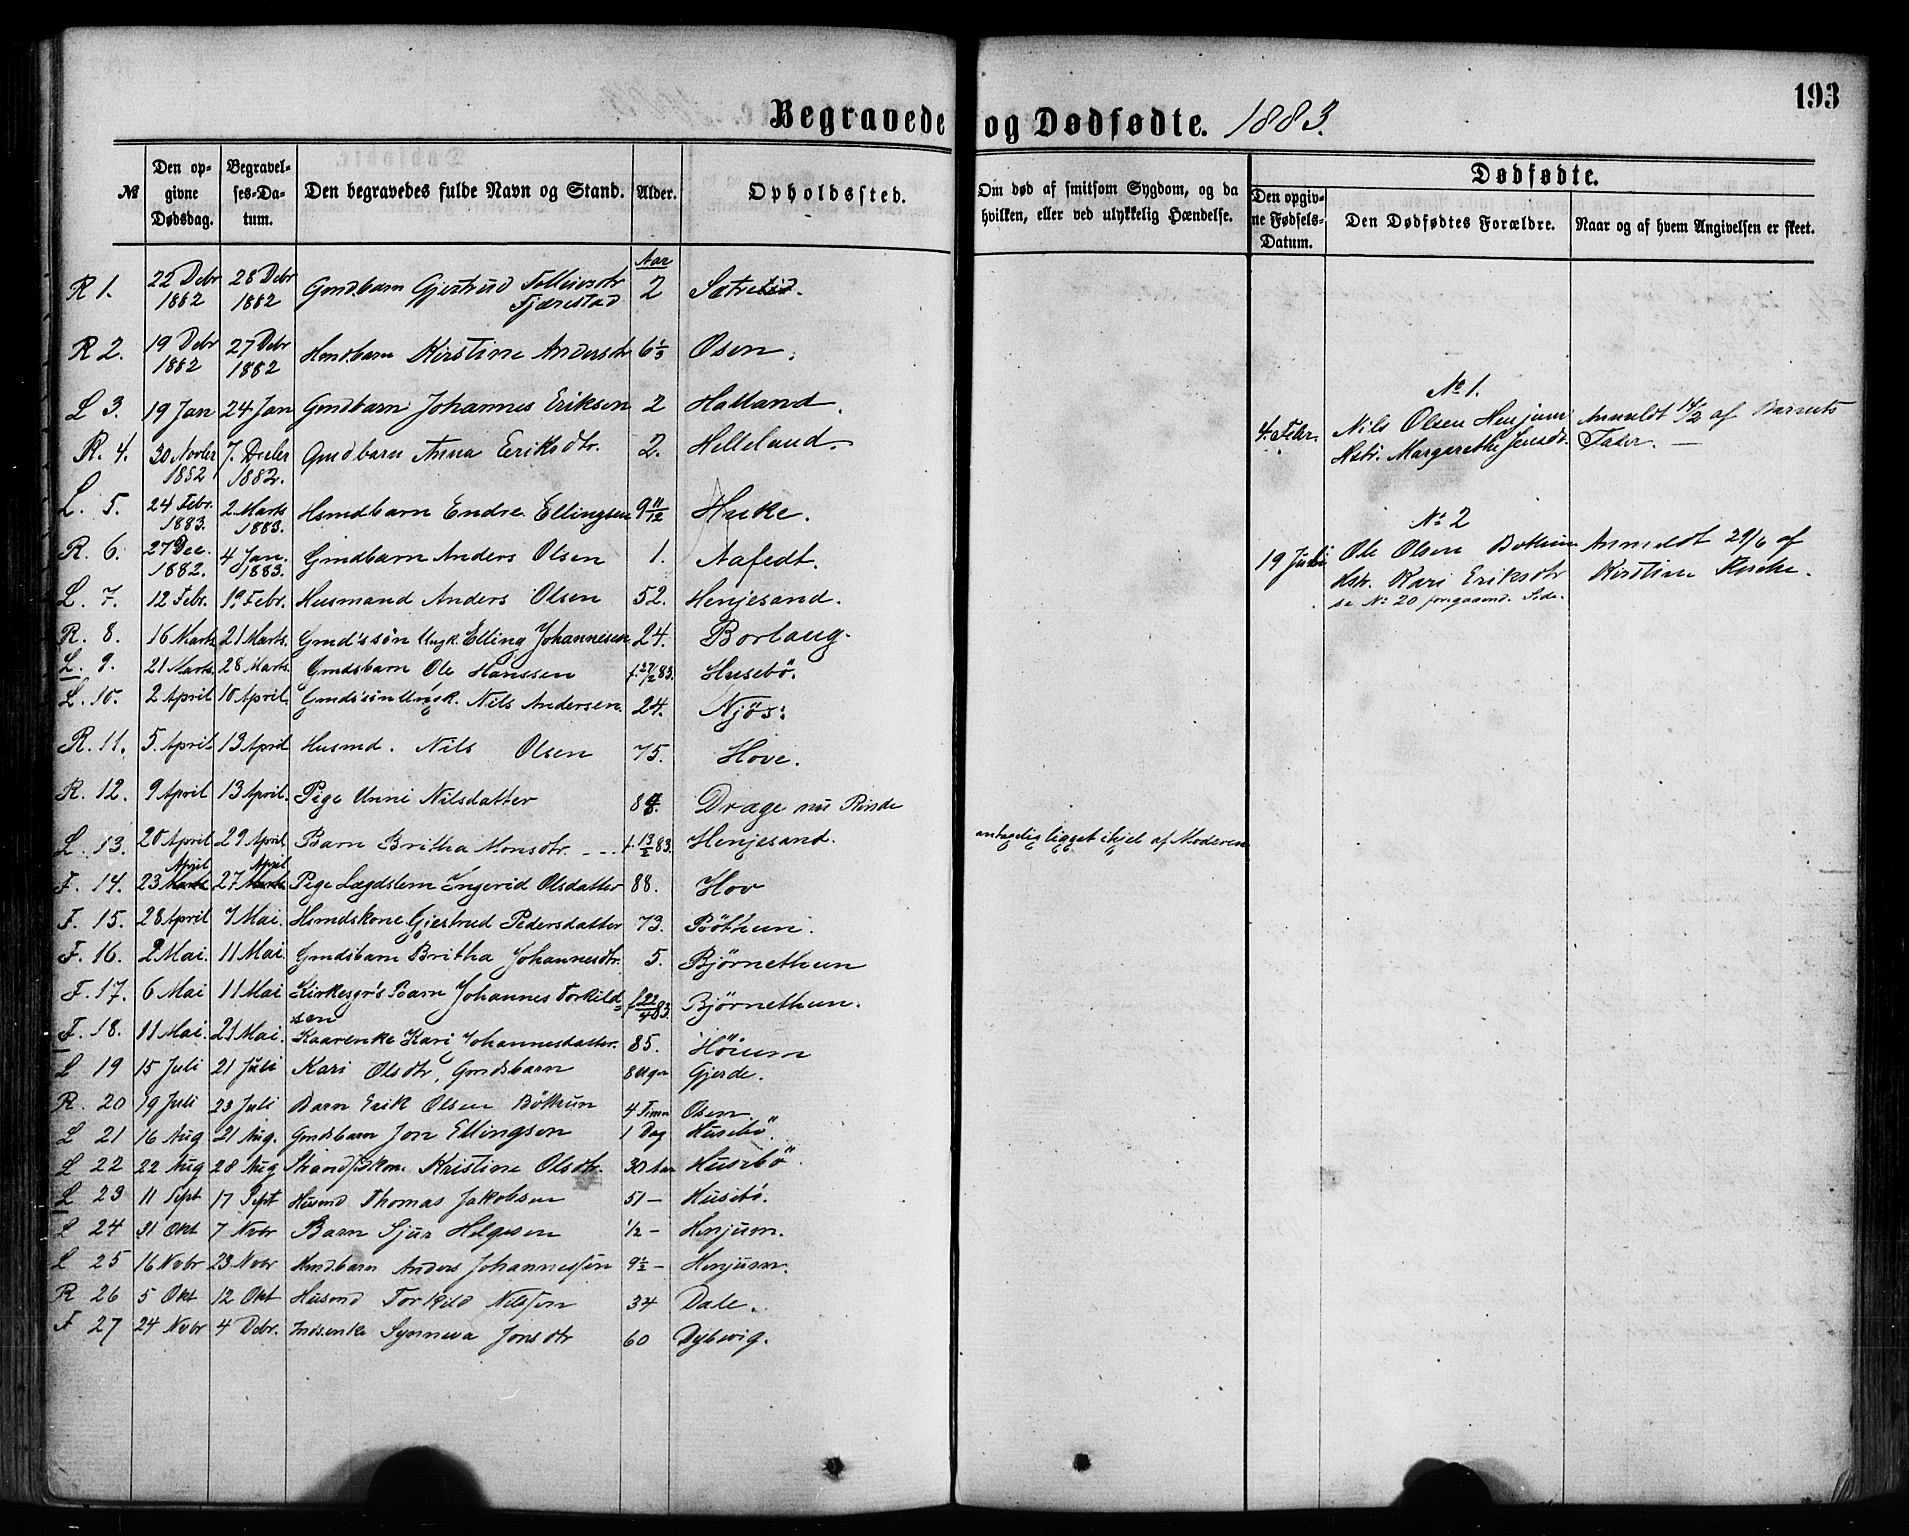 193
Begravede og Dødfødte. 1883.
№
Den opgivne Dødsdag.
Begravelses-Datum.
Den begravedes fulde Navn og Stand.
Alder.
Opholdssted.
Om død af smitsom Sygdom, og da hvilken, eller ved ulykkelig Hændelse.
Dødfødte.
Den opgivne Fødsels-Datum.
Den Dødfødtes Forældre.
Naar og af hvem Angivelsen er skeet.
Aar
R 1. 22 Debr 1882 28 Debr 1882 Gmdbarn Gjertrud Tollivsdtr Fjærestad 2
R 2. 19 Debr 1882 27 Debr 1882 Hmdbarn Kirstine Andersdtr 6 1/3 Osen.
L 3. 19 Jan 24 Jan Gmdbarn Johannes Eriksen 2 Halland.
R. 4. 30 Novbr 1882 7. Decbr 1882. Gmdbarn Anna Eriksdtr. 2. Helleland.
L. 5. 24 Febr. 1883. 2 Marts 1883. Hsmdbarn Endre Ellingsen 9 11/12 Huke.
R. 6. 27 Dec. 1882. 4 Jan. 1883. Gmdbarn Anders Olsen 1. Aafedt.
L. 7. 12 Febr. 19 Febr. Husmand Anders Olsen 52. Henjesand.
R. 8. 16 Marts 21 Marts. Gmd's søn Ungk. Elling Johannesen 24. Borlaug.
L. 9. 21 Marts. 28 Marts. Gmdsbarn Ole Hanssen f. 27/2 83. Husebö.
L. 10. 2 April 10 April. Gmds søn Ungk. Nils Andersen. 24. Njøs.
R. 11. 5. April 13 April Husmd. Nils Olsen 75. Hove.
R. 12. 9 April 13 April. Pige Unni Nilsdatter Drægе nu Rinde
L. 13. 20 April 29 April Barn Britha Monsdtr. f. 13/2 83. Henjesand. antagelig ligget ihjel af Moderen
F. 14. 23 April 27 April Pige Lægdslem Ingerid Olsdatter 88. Hov
F. 15. 28 April 7 Mai. Hsmdskone Gjertrud Pedersdatter 73. Böthun.
F. 16. 2 Mai. 11 Mai. Gmdsbarn Britha Johannesdtr. 5. Bjørnethun
F. 17. 6 Mai 11 Mai Kirkesgr's Barn Johannes Torkildsen f 22/4 83. Bjørnethun.
F. 18. 11 Mai. 21 Mai. Kaarenke Kari Johannesdatter. 85. Höium
L 19 15 Juli 21 Juli Kari Olsdtr, Gmdsbarn 8 Uger Gjerde.
R. 20 19 Juli 23 Juli Barn Erik Olsen Böthun 4 Timer Osen
L 21 16 Aug 21 Aug. Gmdsbarn Jon Ellingsen 1 Dag Husebö.
L 22 22 Aug 28 Aug Kristine Olsdtr. 30 Aar Husebö.
L 23 11 Sept 17 Sept Husmd Thomas Jakobsen 51 — Husebö.
L 24 31 Okt 7 Novbr Barn Sjur Helgesen 1/2 — Henjum.
L 25 16 Novbr 23 Novbr Hmdbarn Anders Johannessøn 9 1/2 — Henjum.
R 26 5 Okt 12 Okt Husmd Torkild Nilsson 34 Dale.
F 27 24 Novbr 4 Debr. Indsenke Synneva Jonsdtr 60 Dybvig.
№ 1.
4. Febr. Nils Olsen Henjum
Hstr. Margarethe Jensdt.
Anmeldt 14/2 af Barnets Fader. —
№ 2
19 Juli Ole Olsen Bothun
Hstr. Kari Eriksdtr
se № 20 forgaaend. Side.
Anmeldt 29/6 af Kirstine